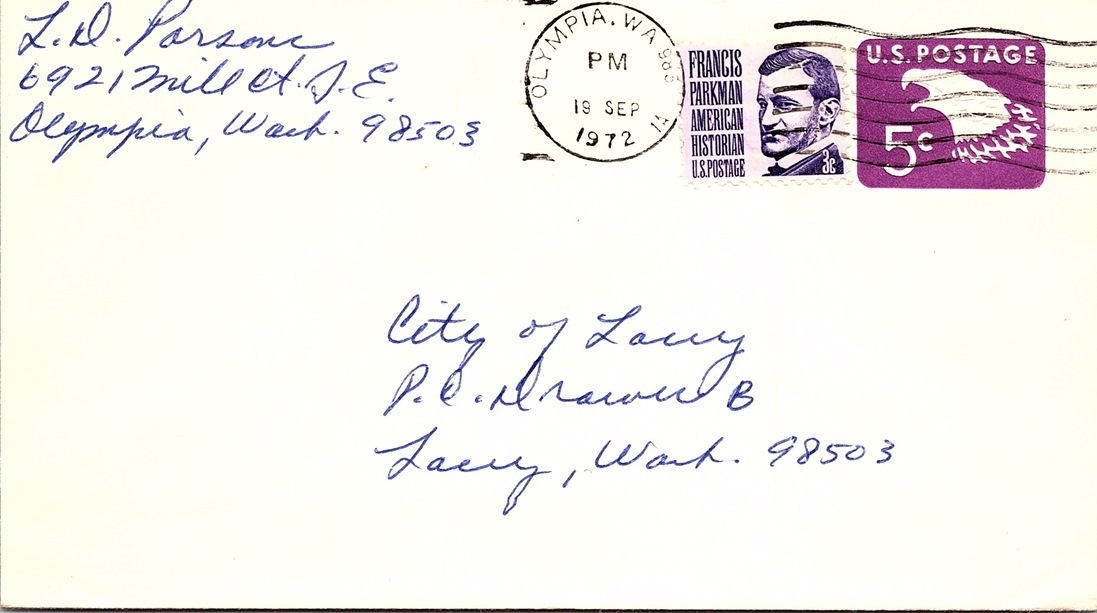 L. D. Parsons
6921 Mill Ct. S.E.
Olympia, Wash. 98503
OLYMPIA, WA 985
PM
19 SEP
1972
FRANCIS
PARKMAN
AMERICAN
HISTORIAN
U.S. POSTAGE
3c
U.S. POSTAGE
5c
City of Lacey
P.O. Drawer B
Lacey, Wash. 98503